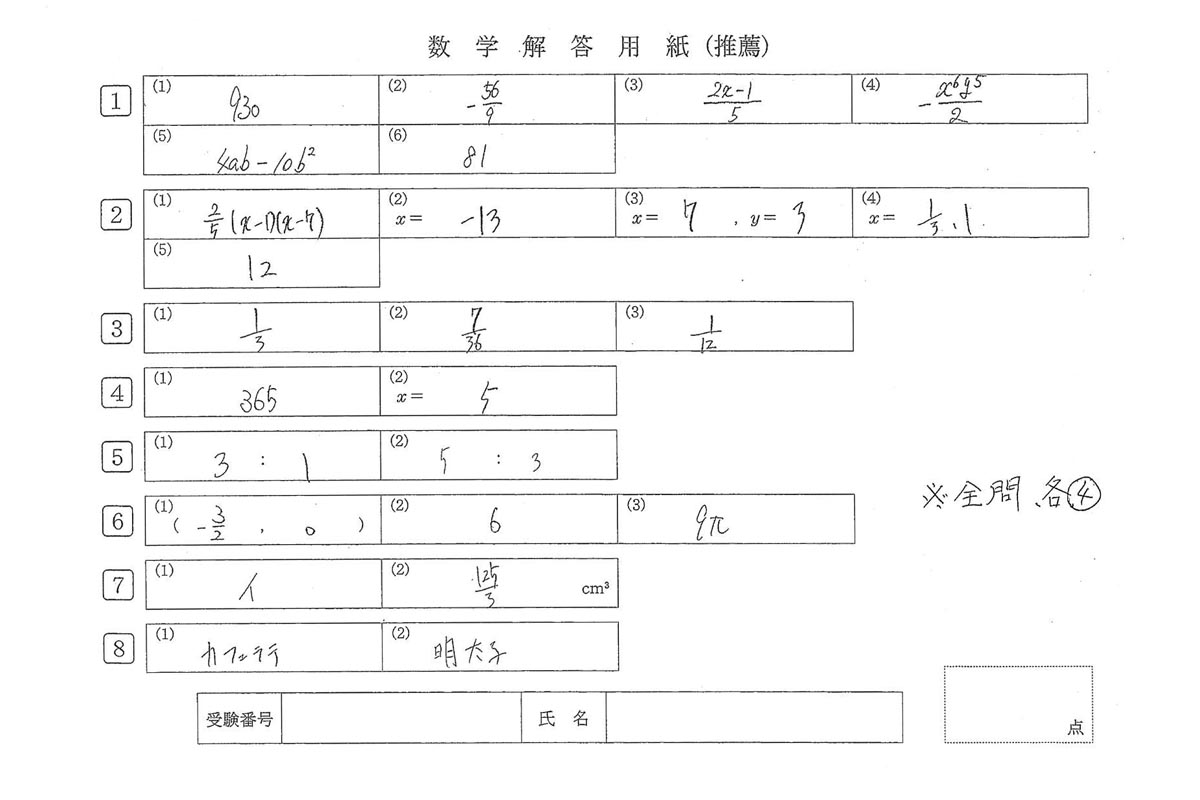 数学解答用紙(推薦)
1 (1) 930 (2) -56/9 (3) (2x-1)/5 (4) -x⁶y⁵/2
(5) 4ab-10b² (6) 81
2 (1) 2/5(x-1)(x-7) (2) x= -13 (3) x= 7 , y= 3 (4) x= 1/3、1
(5) 12
3 (1) 1/3 (2) 7/36 (3) 1/12
4 (1) 365 (2) x= 5
5 (1) 3 : 1 (2) 5 : 3
6 (1) ( -3/2 , 0 ) (2) 6 (3) 9π
※全問、各④
7 (1) イ (2) 125/3 cm³
8 (1) カフェラテ (2) 明太子
受験番号 氏名 点